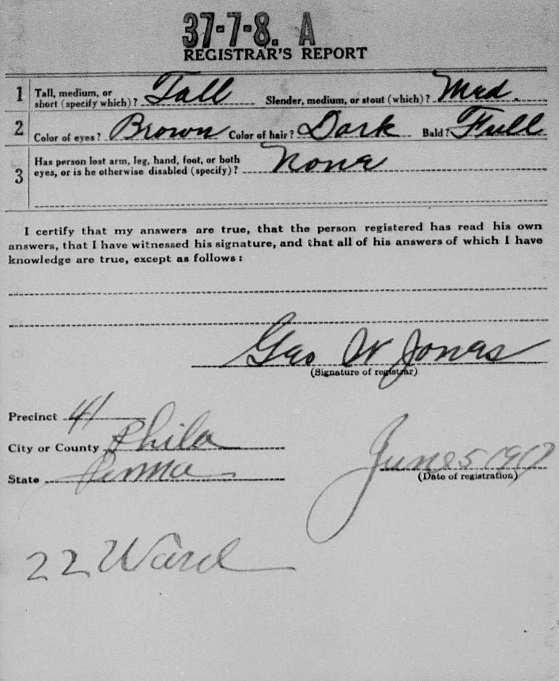 37-7-8. A
REGISTRAR'S REPORT
1 Tall, medium, or short (specify which)? Tall Slender, medium, or stout (which)? Med.
2 Color of eyes? Brown Color of hair? Dark Bald? Full
3 Has person lost arm, leg, hand, foot, or both eyes, or is he otherwise disabled (specify)? None
I certify that my answers are true, that the person registered has read his own
answers, that I have witnessed his signature, and that all of his answers of which I have
knowledge are true, except as follows:
Geo W Jones
(Signature of registrar)
Precinct 41
City or County Phila
State Penna
June 5 1917
(Date of registration)
22 Ward